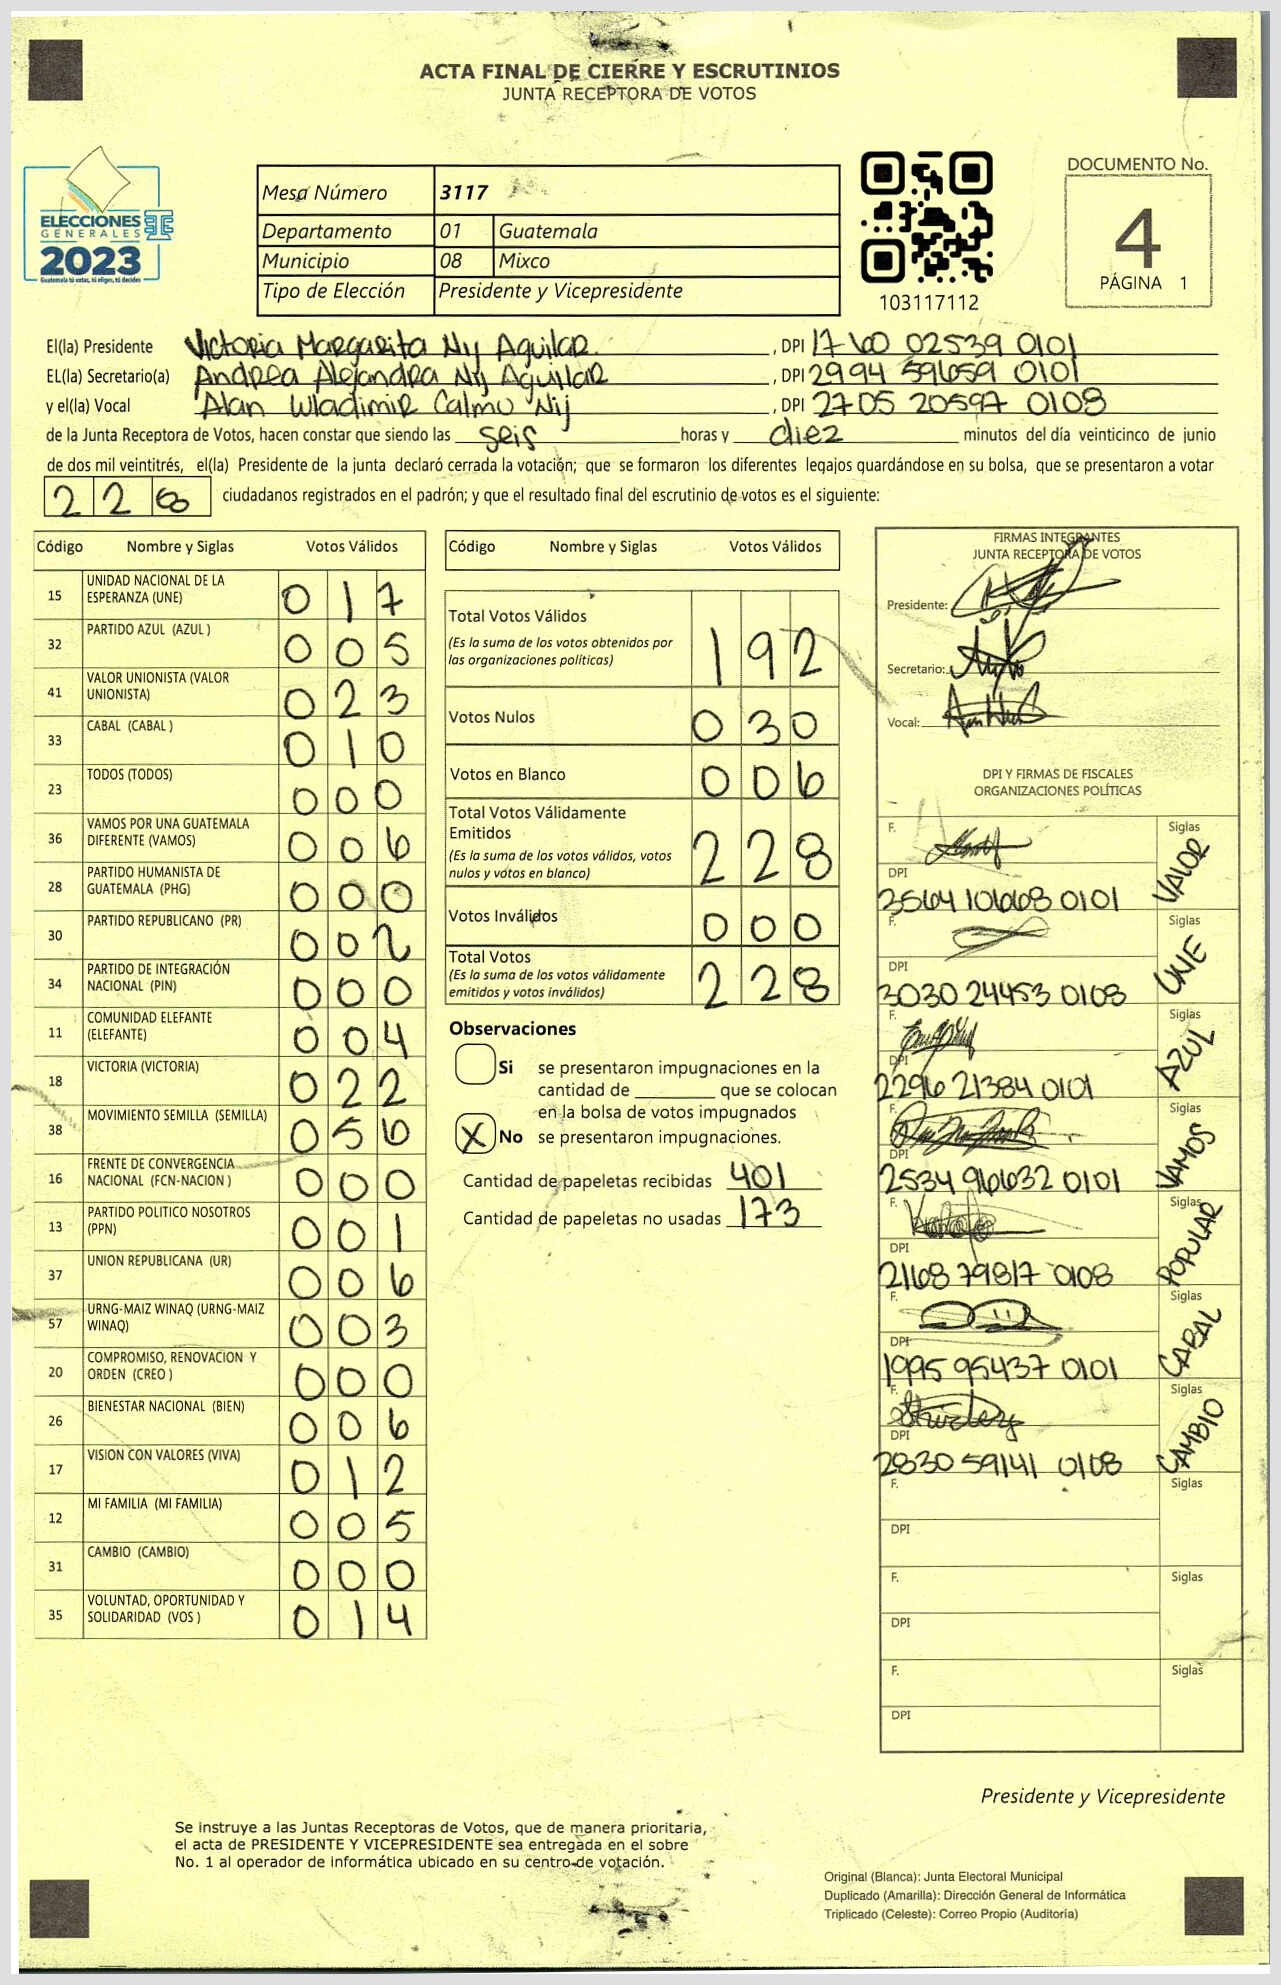 ACTA FINAL DE CIERRE Y ESCRUTINIOS
JUNTA RECEPTORA DE VOTOS
ELECCIONES
GENERALES
2023
Guatemala tú votas, tú eliges, tú decides
Mesa Número 3117
Departamento 01 Guatemala
Municipio 08 Mixco
Tipo de Elección Presidente y Vicepresidente
103117112
DOCUMENTO No.
4
PÁGINA 1
El(la) Presidente Victoria Margarita Nij Aguilar , DPI 1760 02539 0101
EL(la) Secretario(a) Andrea Alejandra Nij Aguilar , DPI 2994 59659 0101
y el(la) Vocal Alan Wladimir Calmo Nij , DPI 2705 20597 0108
de la Junta Receptora de Votos, hacen constar que siendo las seis horas y diez minutos del día veinticinco de junio
de dos mil veintitrés, el(la) Presidente de la junta declaró cerrada la votación; que se formaron los diferentes legajos guardándose en su bolsa, que se presentaron a votar
228 ciudadanos registrados en el padrón; y que el resultado final del escrutinio de votos es el siguiente:
Código Nombre y Siglas Votos Válidos
15 UNIDAD NACIONAL DE LA ESPERANZA (UNE) 017
32 PARTIDO AZUL (AZUL ) 005
41 VALOR UNIONISTA (VALOR UNIONISTA) 023
33 CABAL (CABAL ) 010
23 TODOS (TODOS) 000
36 VAMOS POR UNA GUATEMALA DIFERENTE (VAMOS) 006
28 PARTIDO HUMANISTA DE GUATEMALA (PHG) 000
30 PARTIDO REPUBLICANO (PR) 002
34 PARTIDO DE INTEGRACIÓN NACIONAL (PIN) 000
11 COMUNIDAD ELEFANTE (ELEFANTE) 004
18 VICTORIA (VICTORIA) 022
38 MOVIMIENTO SEMILLA (SEMILLA) 056
16 FRENTE DE CONVERGENCIA NACIONAL (FCN-NACION ) 000
13 PARTIDO POLITICO NOSOTROS (PPN) 001
37 UNION REPUBLICANA (UR) 006
57 URNG-MAIZ WINAQ (URNG-MAIZ WINAQ) 003
20 COMPROMISO, RENOVACION Y ORDEN (CREO ) 000
26 BIENESTAR NACIONAL (BIEN) 006
17 VISION CON VALORES (VIVA) 012
12 MI FAMILIA (MI FAMILIA) 005
31 CAMBIO (CAMBIO) 000
35 VOLUNTAD, OPORTUNIDAD Y SOLIDARIDAD (VOS ) 014
Código Nombre y Siglas Votos Válidos
Total Votos Válidos 192
(Es la suma de los votos obtenidos por
las organizaciones políticas)
Votos Nulos 030
Votos en Blanco 006
Total Votos Válidamente
Emitidos 228
(Es la suma de los votos válidos, votos
nulos y votos en blanco)
Votos Inválidos 000
Total Votos 228
(Es la suma de los votos válidamente
emitidos y votos inválidos)
Observaciones
Si se presentaron impugnaciones en la
cantidad de ________ que se colocan
en la bolsa de votos impugnados
X No se presentaron impugnaciones.
Cantidad de papeletas recibidas 401
Cantidad de papeletas no usadas 173
FIRMAS INTEGRANTES
JUNTA RECEPTORA DE VOTOS
Presidente:
Secretario:
Vocal:
DPI Y FIRMAS DE FISCALES
ORGANIZACIONES POLÍTICAS
F. Siglas VALOR
DPI
3564 10668 0101
F. Siglas UNE
DPI
3030 24453 0108
F. Siglas AZUL
DPI
2296 21384 0101
F. Siglas VAMOS
DPI
2534 96632 0101
F. Siglas POPULAR
DPI
2168 79817 0108
F. Siglas CABAL
DPI
1995 95437 0101
F. Siglas CAMBIO
DPI
2830 59141 0108
F. Siglas
DPI
F. Siglas
DPI
F. Siglas
DPI
Presidente y Vicepresidente
Se instruye a las Juntas Receptoras de Votos, que de manera prioritaria,
el acta de PRESIDENTE Y VICEPRESIDENTE sea entregada en el sobre
No. 1 al operador de informática ubicado en su centro de votación.
Original (Blanca): Junta Electoral Municipal
Duplicado (Amarilla): Dirección General de Informática
Triplicado (Celeste): Correo Propio (Auditoría)